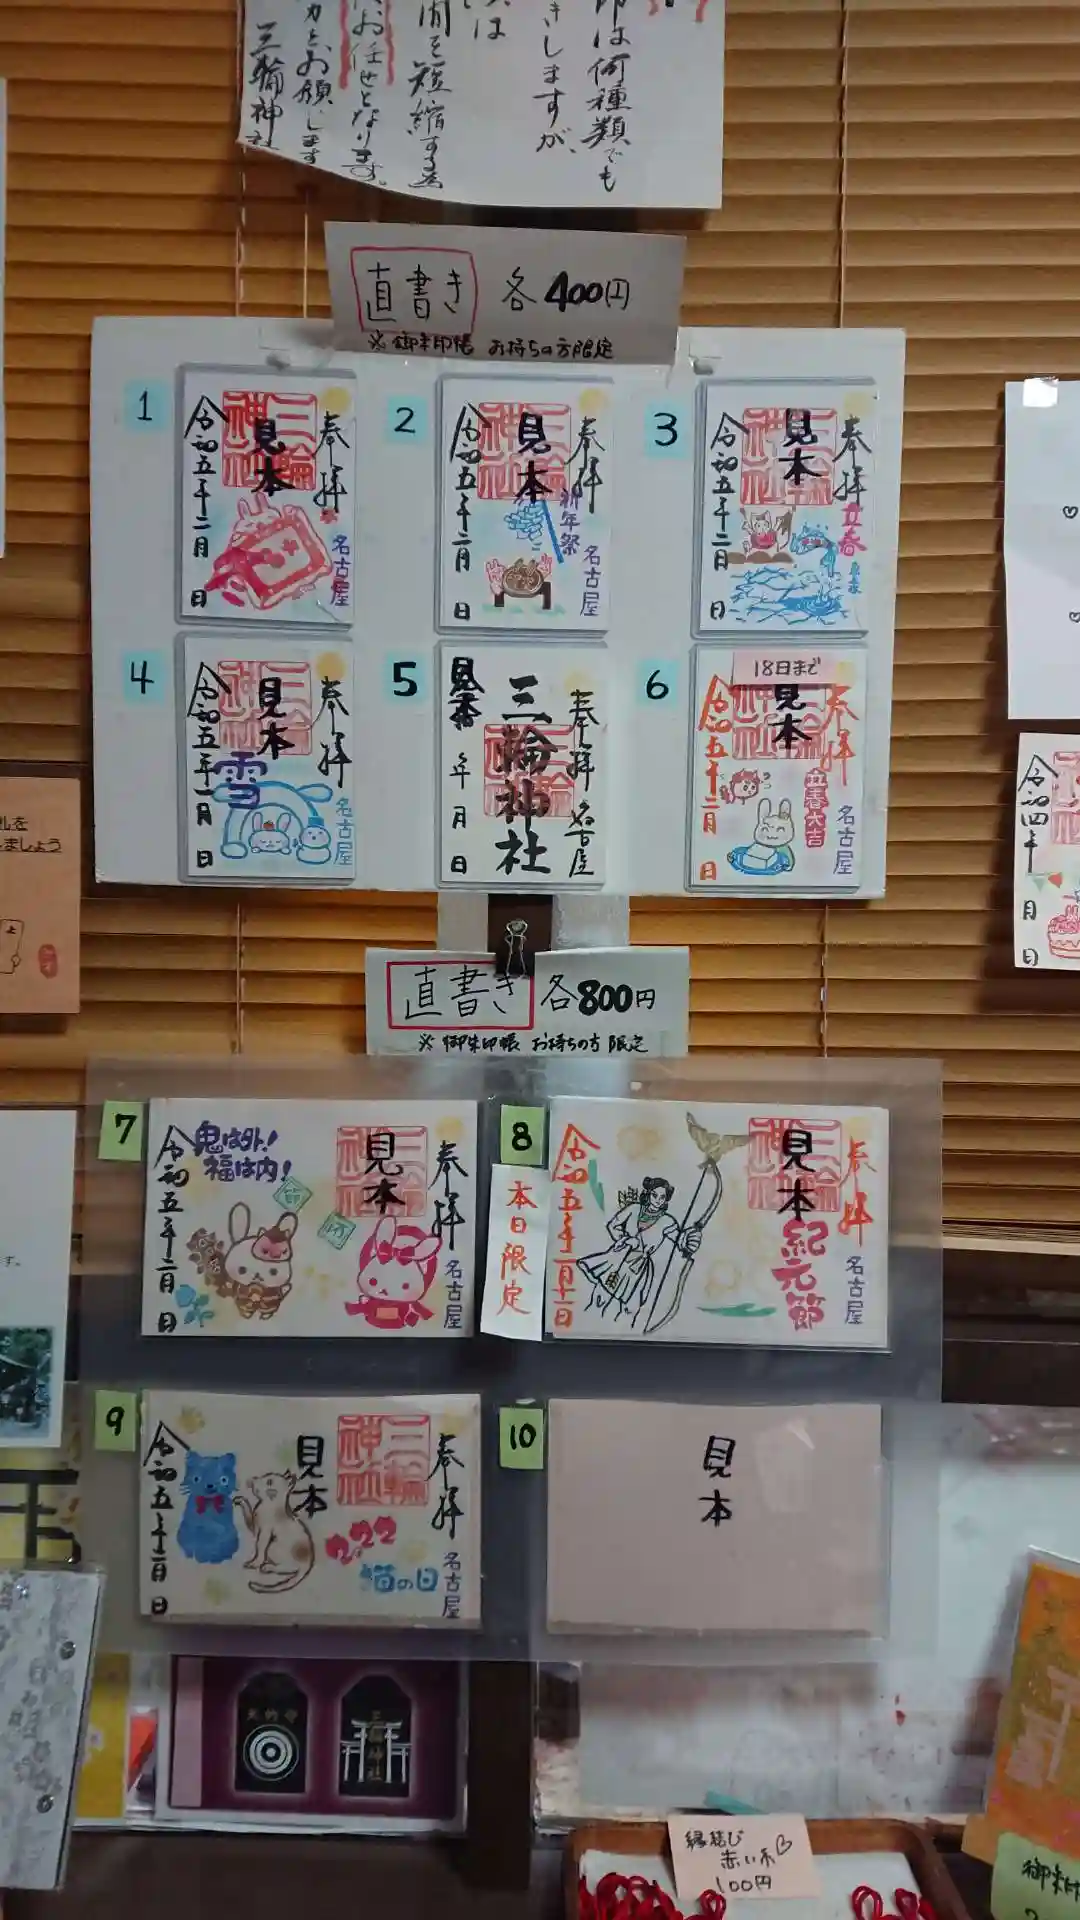 印は何種類でも
きしますが、
は
間を短縮する為
お任せとなります。
お願いします
三輪神社
直書き 各400円
※御朱印帳 お持ちの方限定
1
奉拝
三輪神社
見本
令和五年二月 日
名古屋
2
奉拝
三輪神社
見本
祈年祭
令和五年二月 日
名古屋
3
奉拝
三輪神社
見本
立春
令和五年二月 日
4
奉拝
三輪神社
見本
雪
令和五年一月 日
名古屋
5
奉拝 名古屋
三輪神社
見本
年 月 日
6
18日まで
奉拝
三輪神社
見本
立春大吉
令和五年二月 日
名古屋
直書き 各800円
※御朱印帳 お持ちの方限定
7
奉拝
三輪神社
見本
鬼は外!
福は内!
節
分
令和五年二月 日
名古屋
8
本日限定
奉拝
三輪神社
見本
紀元節
令和五年二月十一日
名古屋
9
奉拝
三輪神社
見本
2.22
猫の日
令和五年二月 日
名古屋
10
見本
令和四年 月 日
ましょう
三輪神社
縁結び
赤い糸♡
100円
御朱印